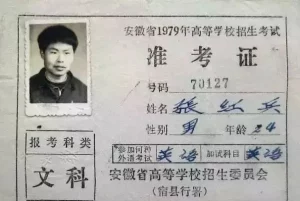 安徽省1979年高等学校招生考试
准考证
号码 70127
姓名 張 兵
性别 男 年龄 24
报考科类
文科
参加何种外语考试 英语 加试科目 英语
安徽省高等学校招生委员会
(宿县行署)